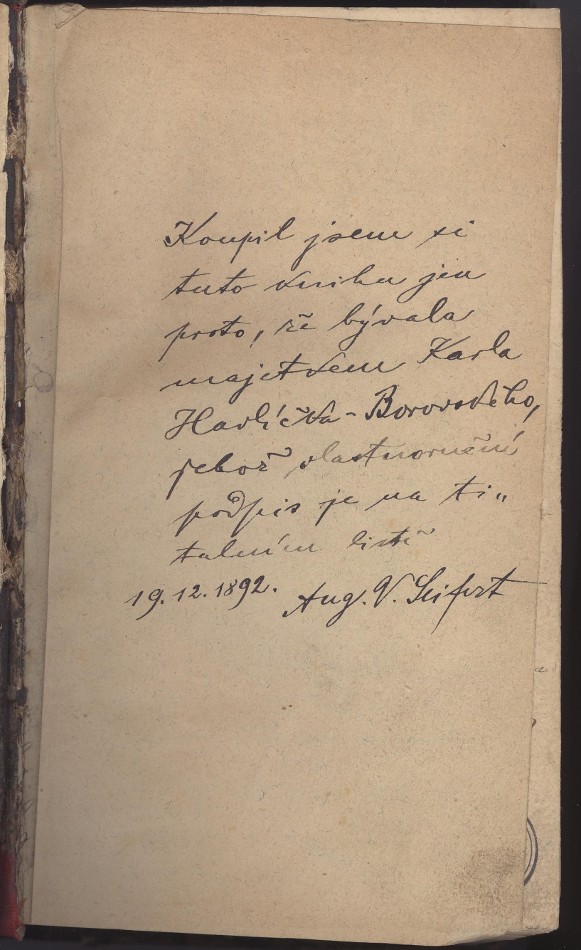 Koupil jsem si
tuto knihu jen
proto, že bývala
majetkem Karla
Havlíčka-Borovského,
jehož vlastnoruční
podpis je na ti„
tulním listě
19.12.1892. Aug. V. Seifert